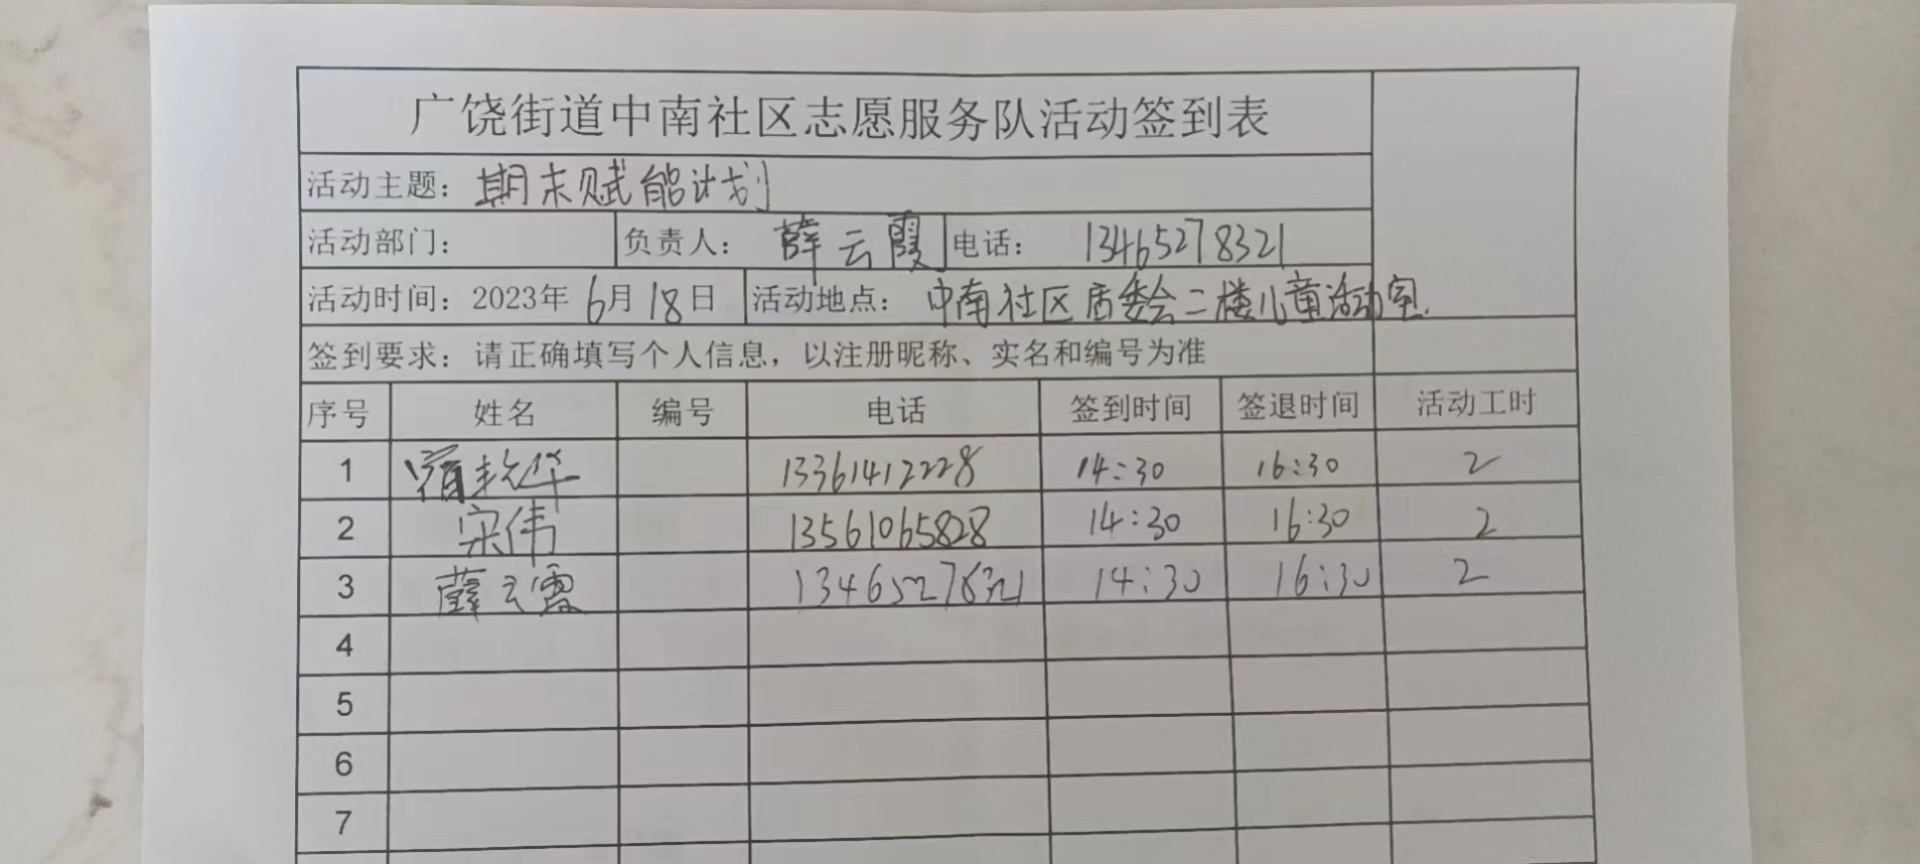 广饶街道中南社区志愿服务队活动签到表
活动主题：期末赋能计划
活动部门： 负责人：薛云霞 电话：13465278321
活动时间：2023年6月18日 活动地点：中南社区居委会二楼儿童活动室.
签到要求：请正确填写个人信息，以注册昵称、实名和编号为准
序号 姓名 编号 电话 签到时间 签退时间 活动工时
1 13361412228 14:30 16:30 2
2 宋伟 13561065828 14:30 16:30 2
3 薛云霞 13465278321 14:30 16:30 2
4
5
6
7